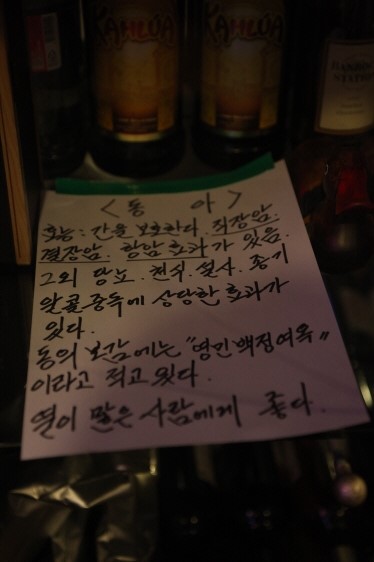 KAHLÚA KAHLÚA
< 동 아 >
효능 : 간을 보호한다. 직장암.
결장암. 항암 효과가 있음.
그외 당뇨. 천식. 설사. 종기
알콜중독에 상당한 효과가
있다.
동의 보감에는 "영민백점여옥"
이라고 적고있다.
열이 많은 사람에게 좋다.